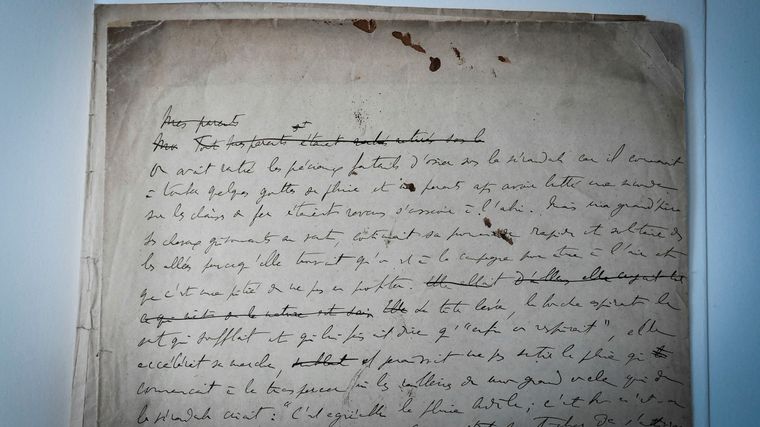 Mes parents
Mes parents étaient rentrés sous la
On avait rentré les précieux fauteuils d'osier sous la vérandah car il commençait
à tomber quelques gouttes de pluie et mes parents après avoir lutté une seconde
sur les chaises de fer étaient revenus s'asseoir à l'abri. Mais ma grand'mère
ses cheveux grisonnants au vent, continuait sa promenade rapide et solitaire dans
les allées parcequ'elle trouvait qu'on est à la campagne pour être à l'air et
que c'est une pitié de ne pas en profiter. Elle allait d'ailleurs elle
ce qui la nature la tête levée, la bouche aspirant le
vent qui soufflait et qui lui faisait dire qu'"enfin on respirait", elle
accélérait sa marche, et paraissait ne pas sentir la pluie qui
commençait à la transpercer ni les railleries de mon grand oncle qui de
la vérandah criait : "C'est agréable la pluie